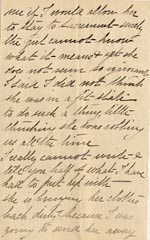 me if I would allow her
to stay to Sacrament - surely
the girl cannot know
what it means & yet she
does not seem so ignorant
I said I did not think
she was in a fit state
to do such a thing little
thinking she was robbing
us all the time
I really cannot write &
tell you half of what I have
had to put up with
she is leaving her clothes
back dirty because I was
going to send her away